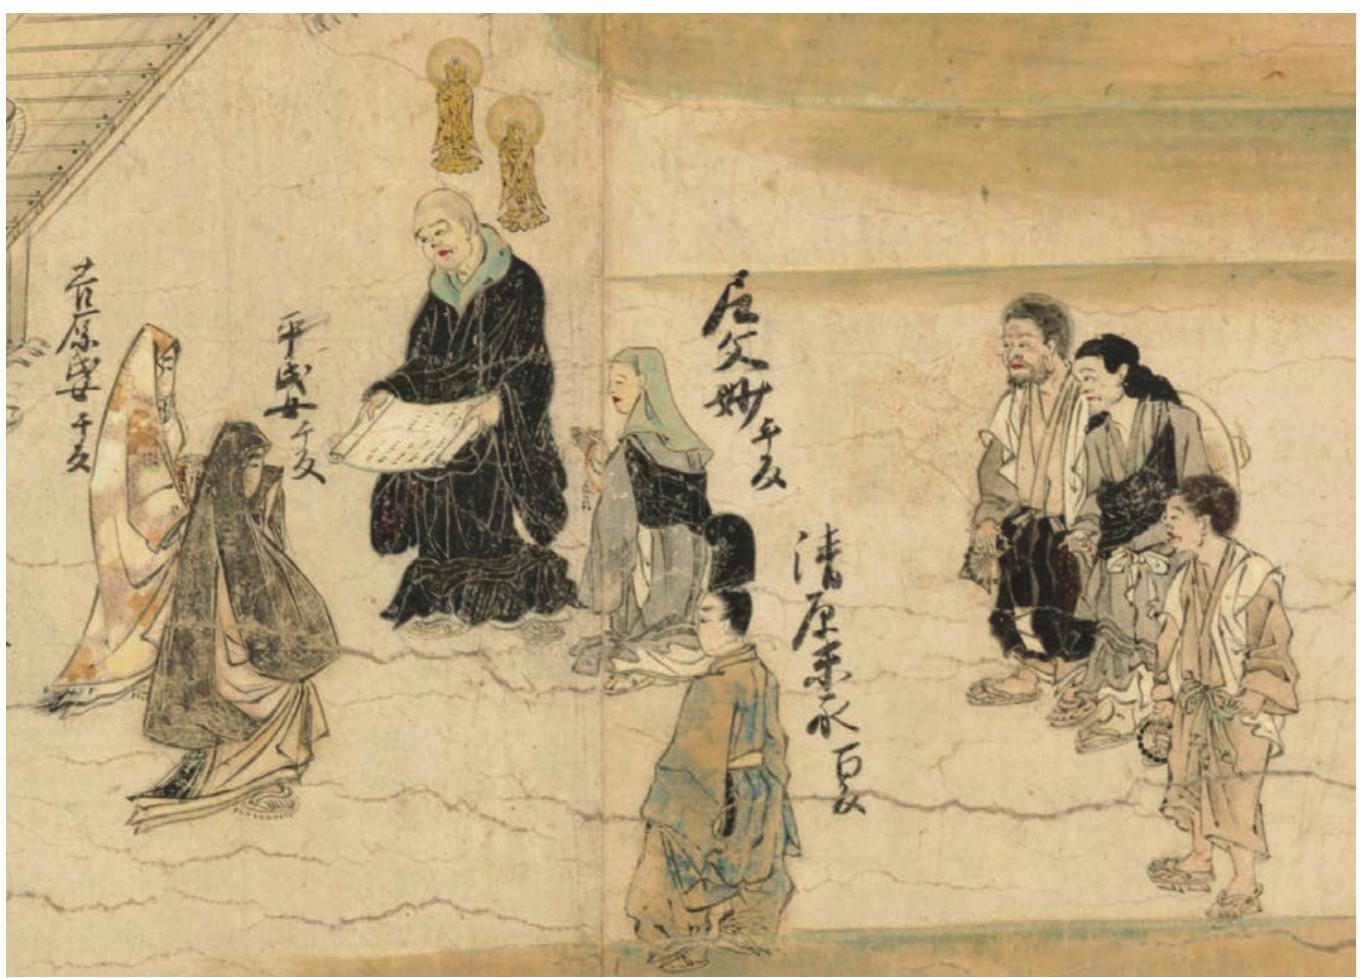 清原末永百反
尼妙千反
平氏女千反
菅原氏女千反